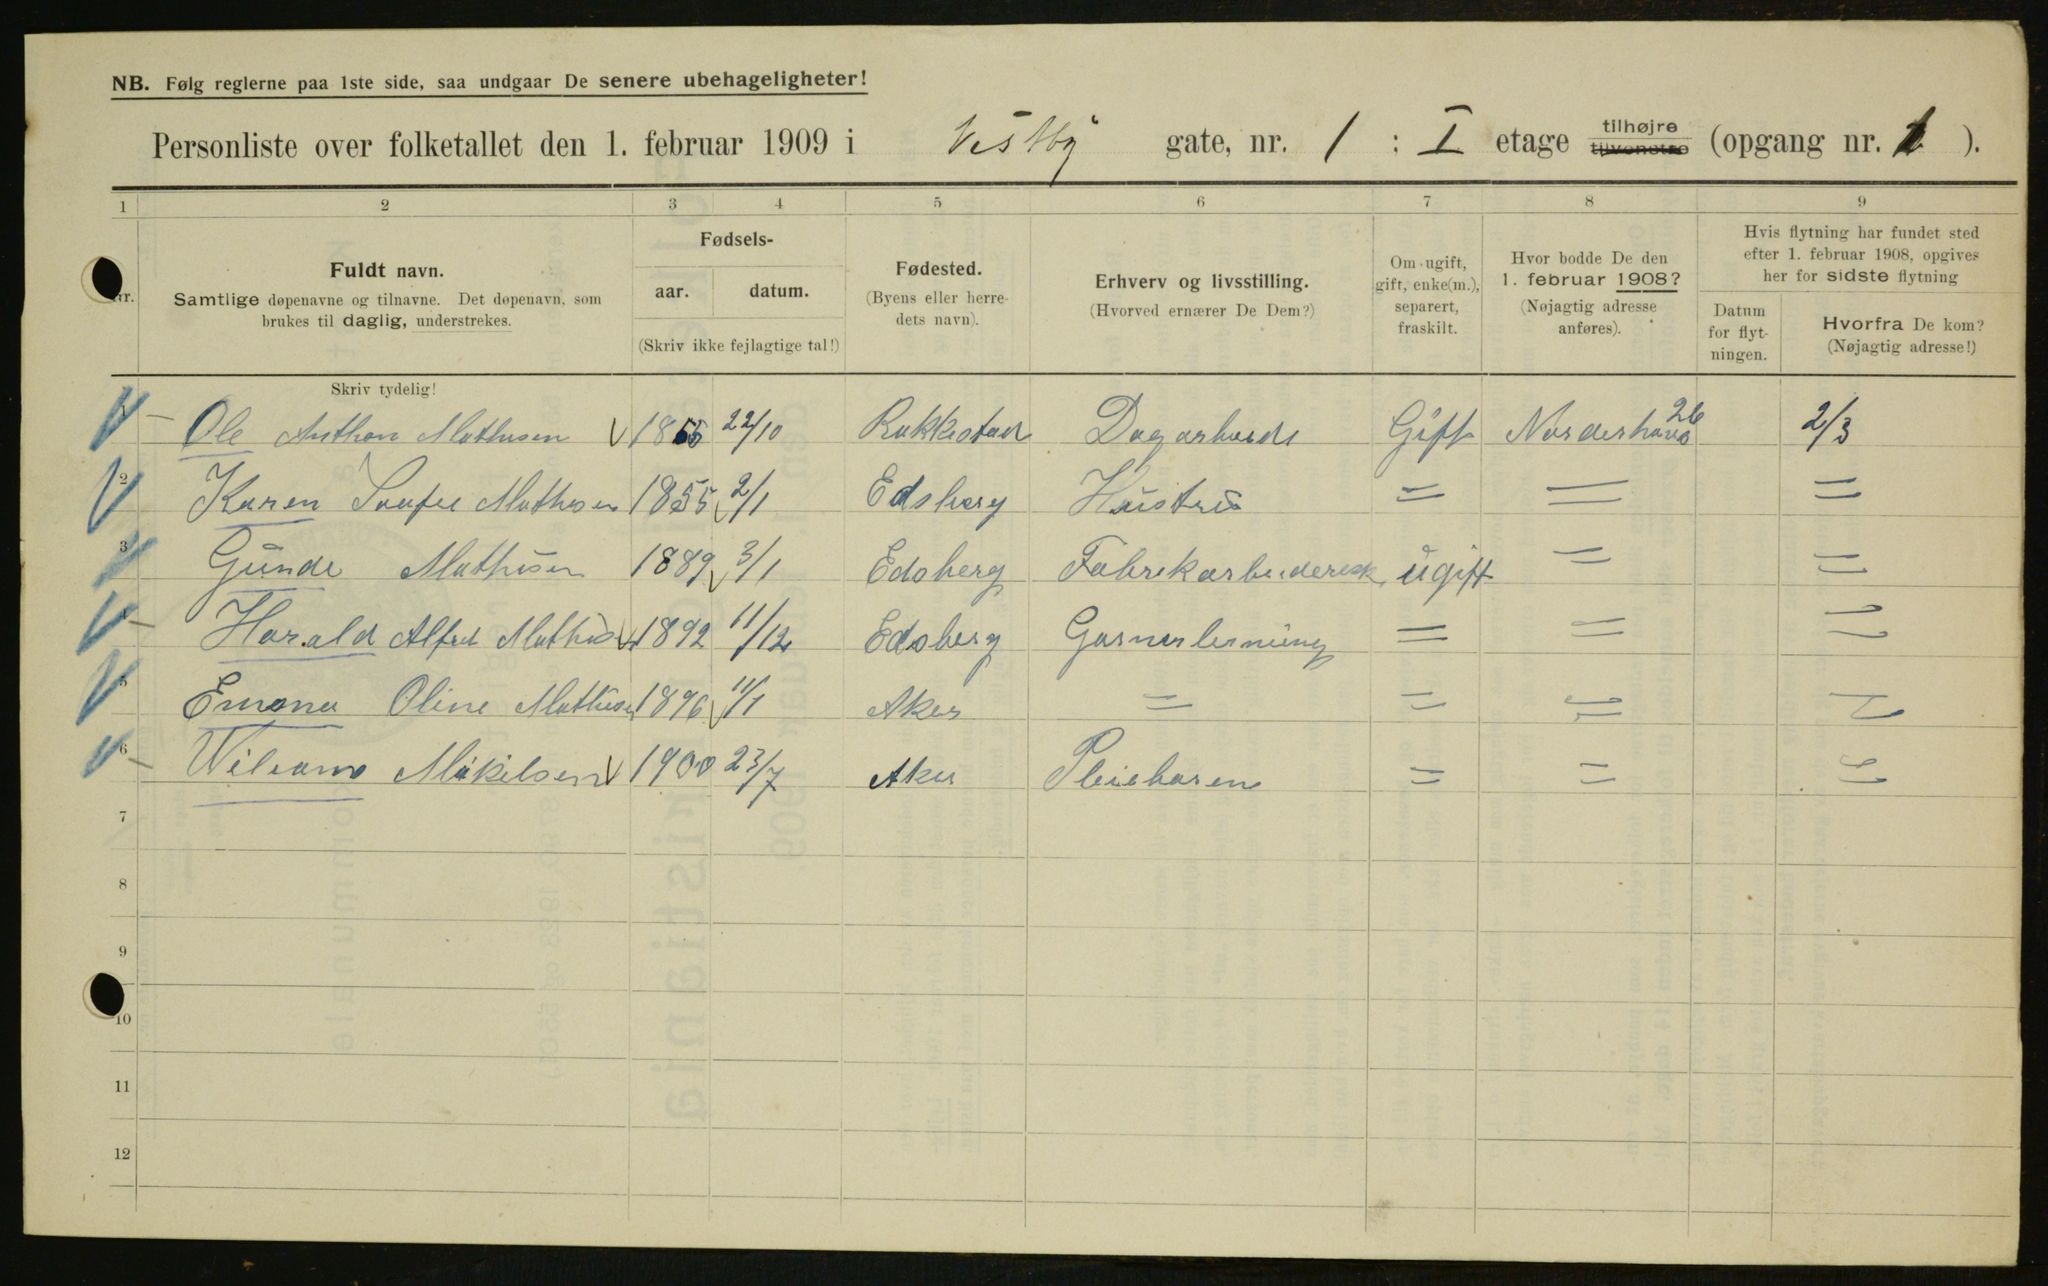 NB. Følg reglerne paa 1ste side, saa undgaar De senere ubehageligheter!
Personliste over folketallet den 1. februar 1909 i Vestby gate, nr. 1 : I etage tilhøjre tilvenstre (opgang nr. 1 ).
1 2 3 4 5 6 7 8 9
Nr.
Fuldt navn.
Samtlige døpenavne og tilnavne. Det døpenavn, som
brukes til daglig, understrekes.
Skriv tydelig!
Fødsels-
aar. datum.
(Skriv ikke fejlagtige tal!)
Fødested.
(Byens eller herre-
dets navn).
Erhverv og livsstilling.
(Hvorved ernærer De Dem?)
Om ugift,
gift, enke(m.),
separert,
fraskilt.
Hvor bodde De den
1. februar 1908?
(Nøjagtig adresse
anføres).
Hvis flytning har fundet sted
efter 1. februar 1908, opgives
her for sidste flytning
Datum
for flyt-
ningen.
Hvorfra De kom?
(Nøjagtig adresse!)
1 Ole Anthon Mathisen 1855 22/10 Rakkestad Dagarbeide Gift Norderhovs 26 2/3
2 Karen Mathisen 1855 2/1 Edsberg Hustru = = =
3 Gunde Mathisen 1889 3/1 Edsberg Fabrekarbeidersk ugift = =
4 Harald Alfred Mathisen 1892 11/12 Edsberg = = =
5 Emma Oline Mathisen 1896 11/1 Aker = = = =
6 Mikelsen 1900 23/7 Aker Pleiebaren = = =
7
8
9
10
11
12